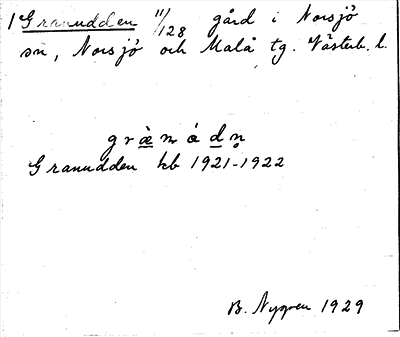 1 Granudden 11/128 gård i Norsjö
sn, Norsjö och Malå tg. Västerb. l.
Granudden kb 1921-1922
B. Nygren 1929